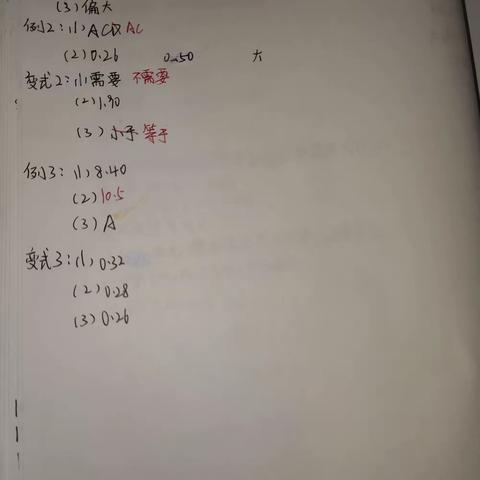 (3)偏大
例2:(1)ACD AC
(2)0.26 0.50 大
变式2:(1)需要 不需要
(2)1.90
(3)小于 等于
例3:(1)8.40
(2)10.5
(3)A
变式3:(1)0.32
(2)0.28
(3)0.26